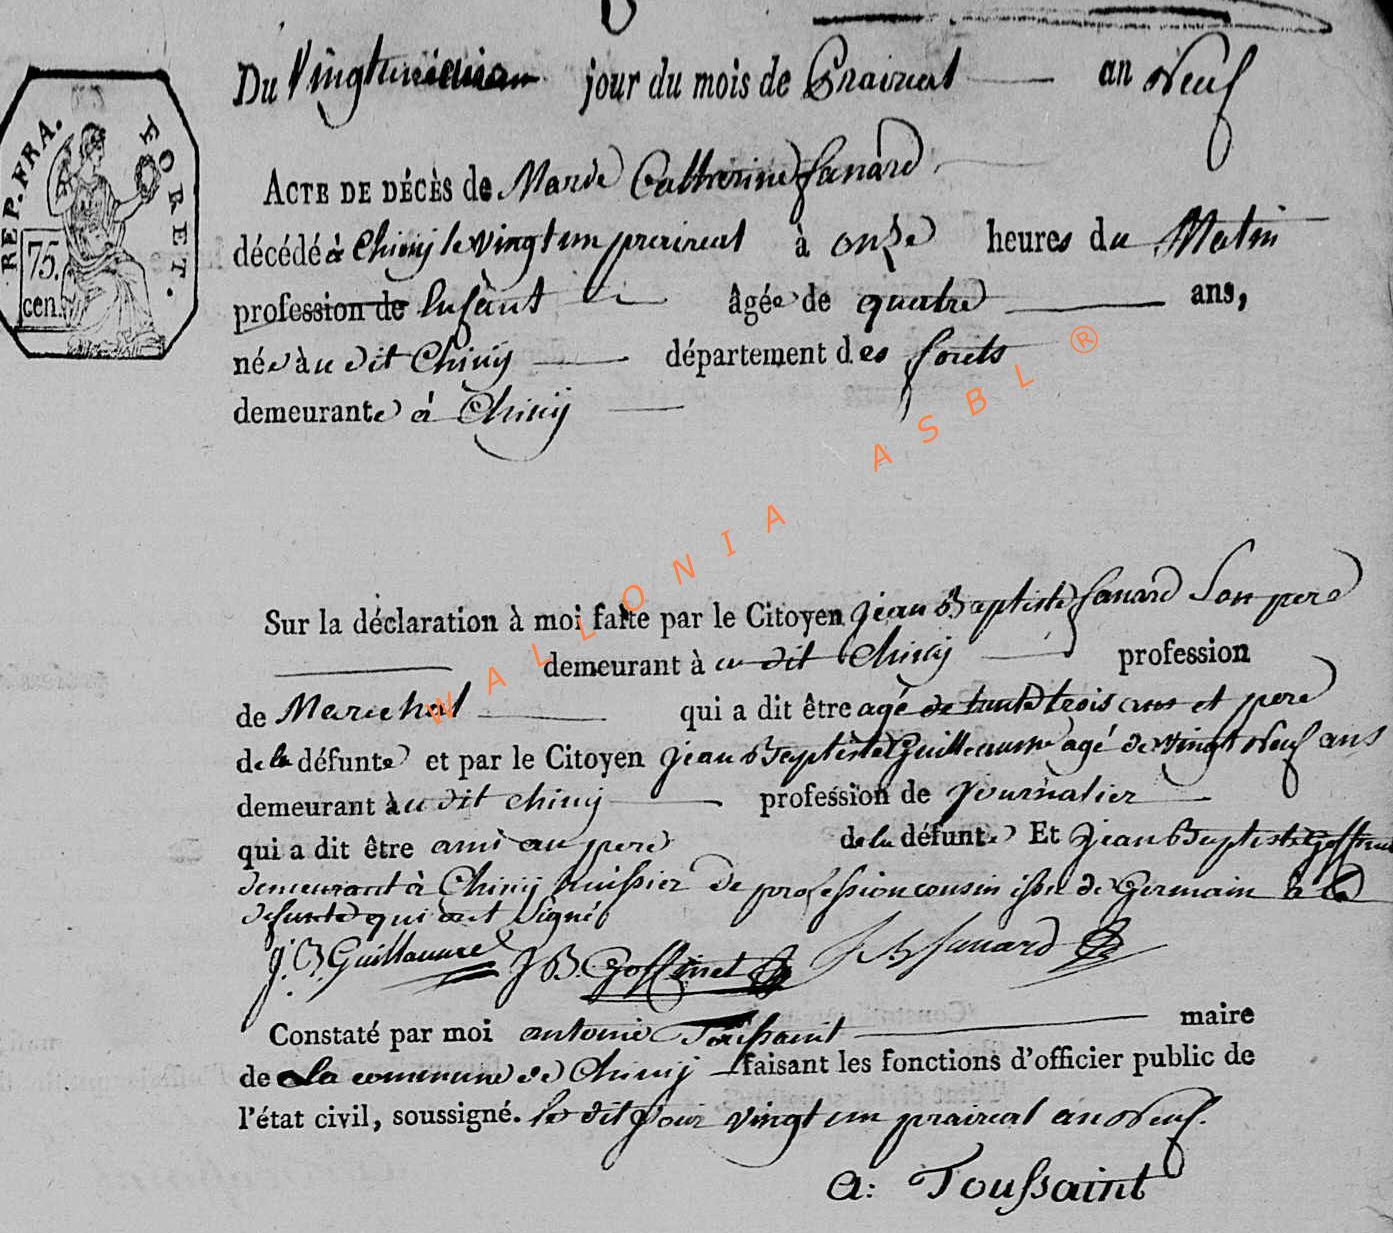 Du Vingtunieme jour du mois de Prairial an Neuf
REP. FRA. FORET.
75. cen.
ACTE DE DÉCÈS de Marie Catherine fanard
décédé à Chiny le vingt un prairial à onze heures du Matin
profession de Enfant âgée de quatre ans,
née àu dit Chiny département des forets
demeurante à Chiny
Sur la déclaration à moi faite par le Citoyen jean Baptiste fanard Son pere
demeurant à u dit Chiny profession
de Marechal qui a dit être agé de trente trois ans et pere
de la défunte et par le Citoyen jean Baptiste Guillaume agé de vingt Neuf ans
demeurant àu dit chiny profession de journalier
qui a dit être ami au pere de la défunte Et jean Baptiste Goffinet
demeurant à Chiny huissier de profession cousin issu de Germain à la
defunte qui ont Signé
J. B. Guillaume J B. Goffinet J B fanard
Constaté par moi antoine Toussaint maire
de La commune de Chiny faisant les fonctions d'officier public de
l'état civil, soussigné. les dit jour vingt un prairial an Neuf.
a: Toussaint
WALLONIA ASBL ®